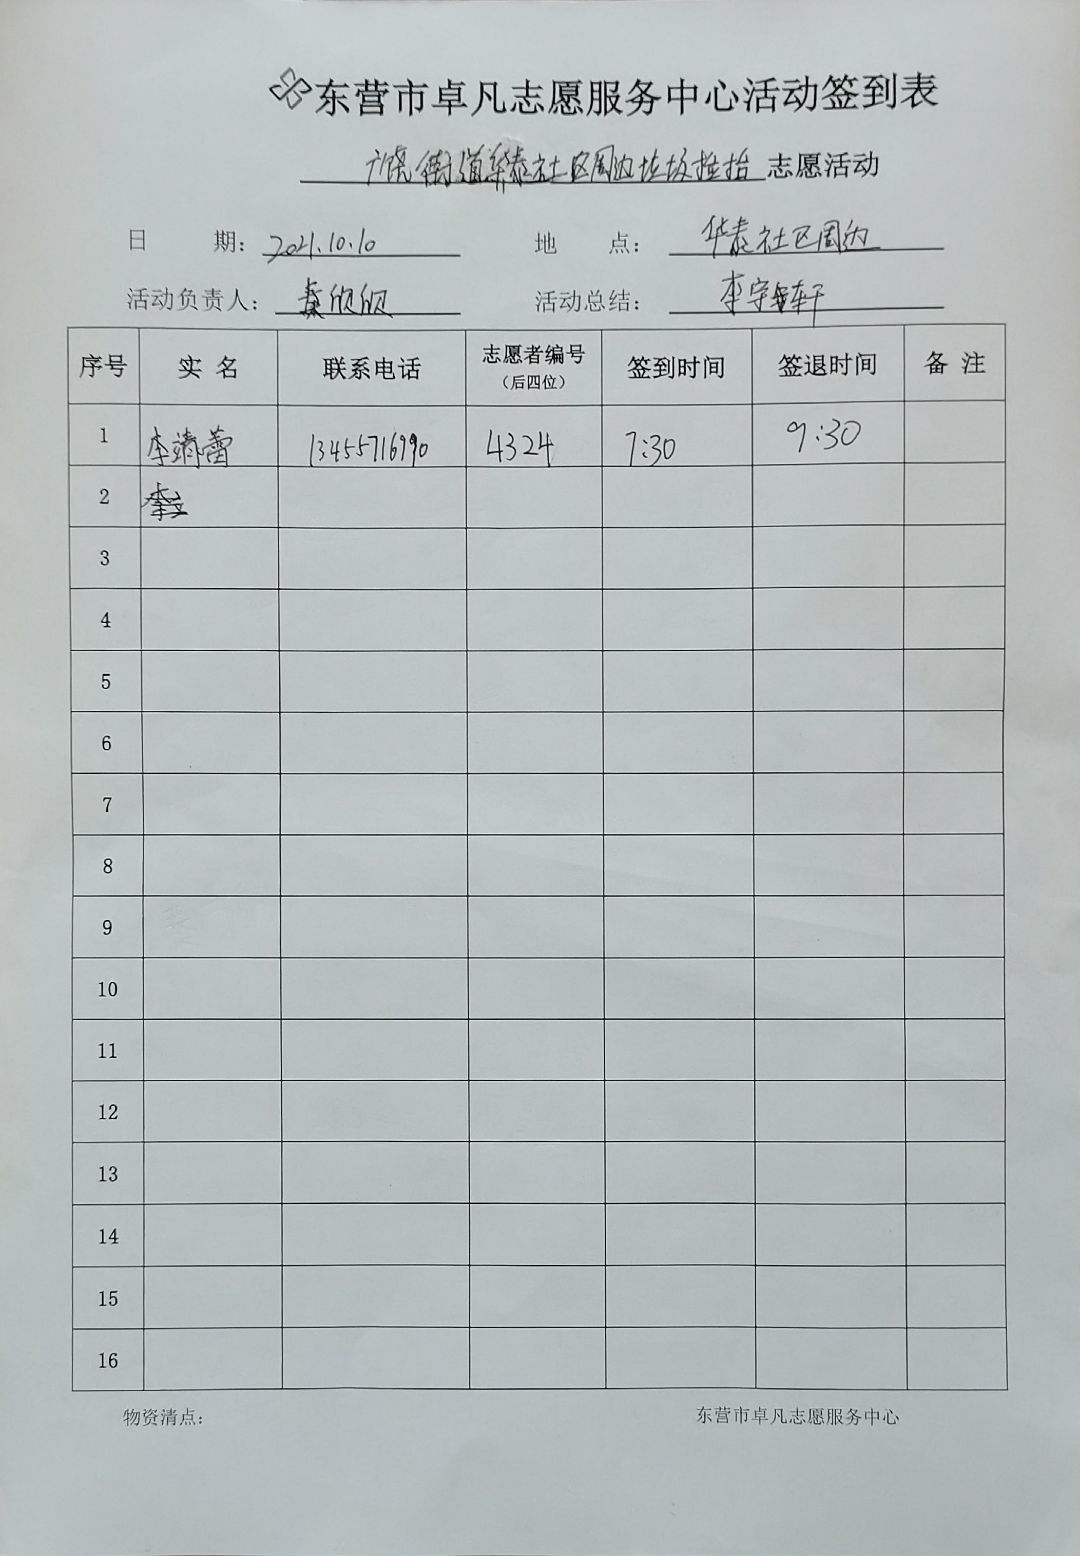 东营市卓凡志愿服务中心活动签到表
街道华泰社区周边垃圾捡拾 志愿活动
日 期： 2021.10.10 地 点： 华泰社区周边
活动负责人： 欣欣 活动总结： 李宇轩
序号 实名 联系电话 志愿者编号（后四位） 签到时间 签退时间 备注
1 李靖蕾 13455716990 4324 7:30 9:30
2
3
4
5
6
7
8
9
10
11
12
13
14
15
16
物资清点： 东营市卓凡志愿服务中心